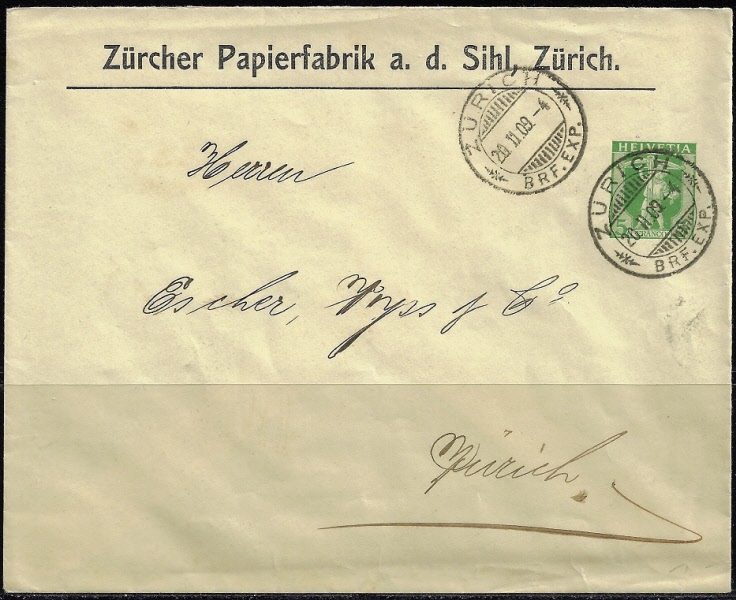 Zürcher Papierfabrik a. d. Sihl, Zürich.
ZÜRICH
20.11.09.-4
BRF. EXP.
HELVETIA
5
ZÜRICH
20.11.09.-4
BRF. EXP.
Herren
Escher, Wyss & Cº
Zürich.